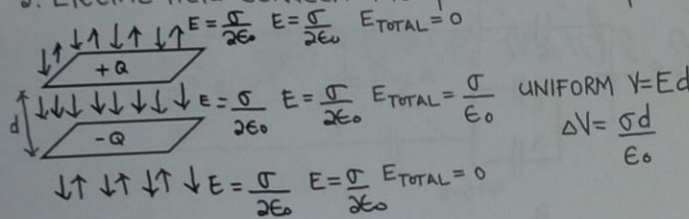 E = σ/2ε₀ E = σ/2ε₀ E TOTAL = 0
+Q
E = σ/2ε₀ E = σ/2ε₀ E TOTAL = σ/ε₀ UNIFORM V=Ed
d
-Q
ΔV = σd/ε₀
E = σ/2ε₀ E = σ/2ε₀ E TOTAL = 0